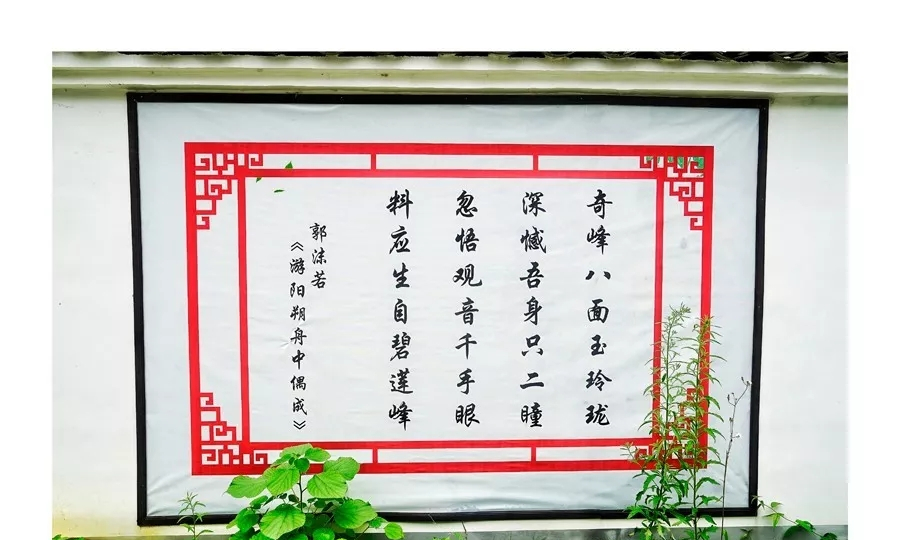 奇峰八面玉玲珑
深憾吾身只二瞳
忽悟观音千手眼
料应生自碧莲峰
郭沫若
《游阳朔舟中偶成》